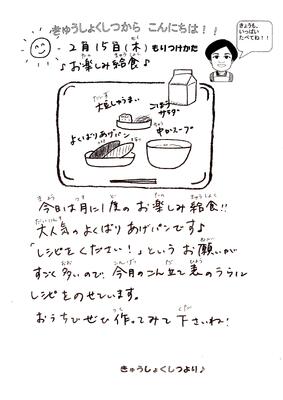 きゅうしょくしつから こんにちは!!
きょうも、
いっぱい
たべてね!!
2月15日(木)もりつけかた
♪お楽しみ給食♪
大豆しゅうまい
ごぼうサラダ
よくばりあげパン
中かスープ
今日は月に1度のお楽しみ給食!!
大人気のよくばりあげパンです♪
「レシピをください!」というお願いが
すごく多いので、今月のこん立て表のうらに
レシピをのせています。
おうちでぜひ作ってみて下さいね!
きゅうしょくしつより♪